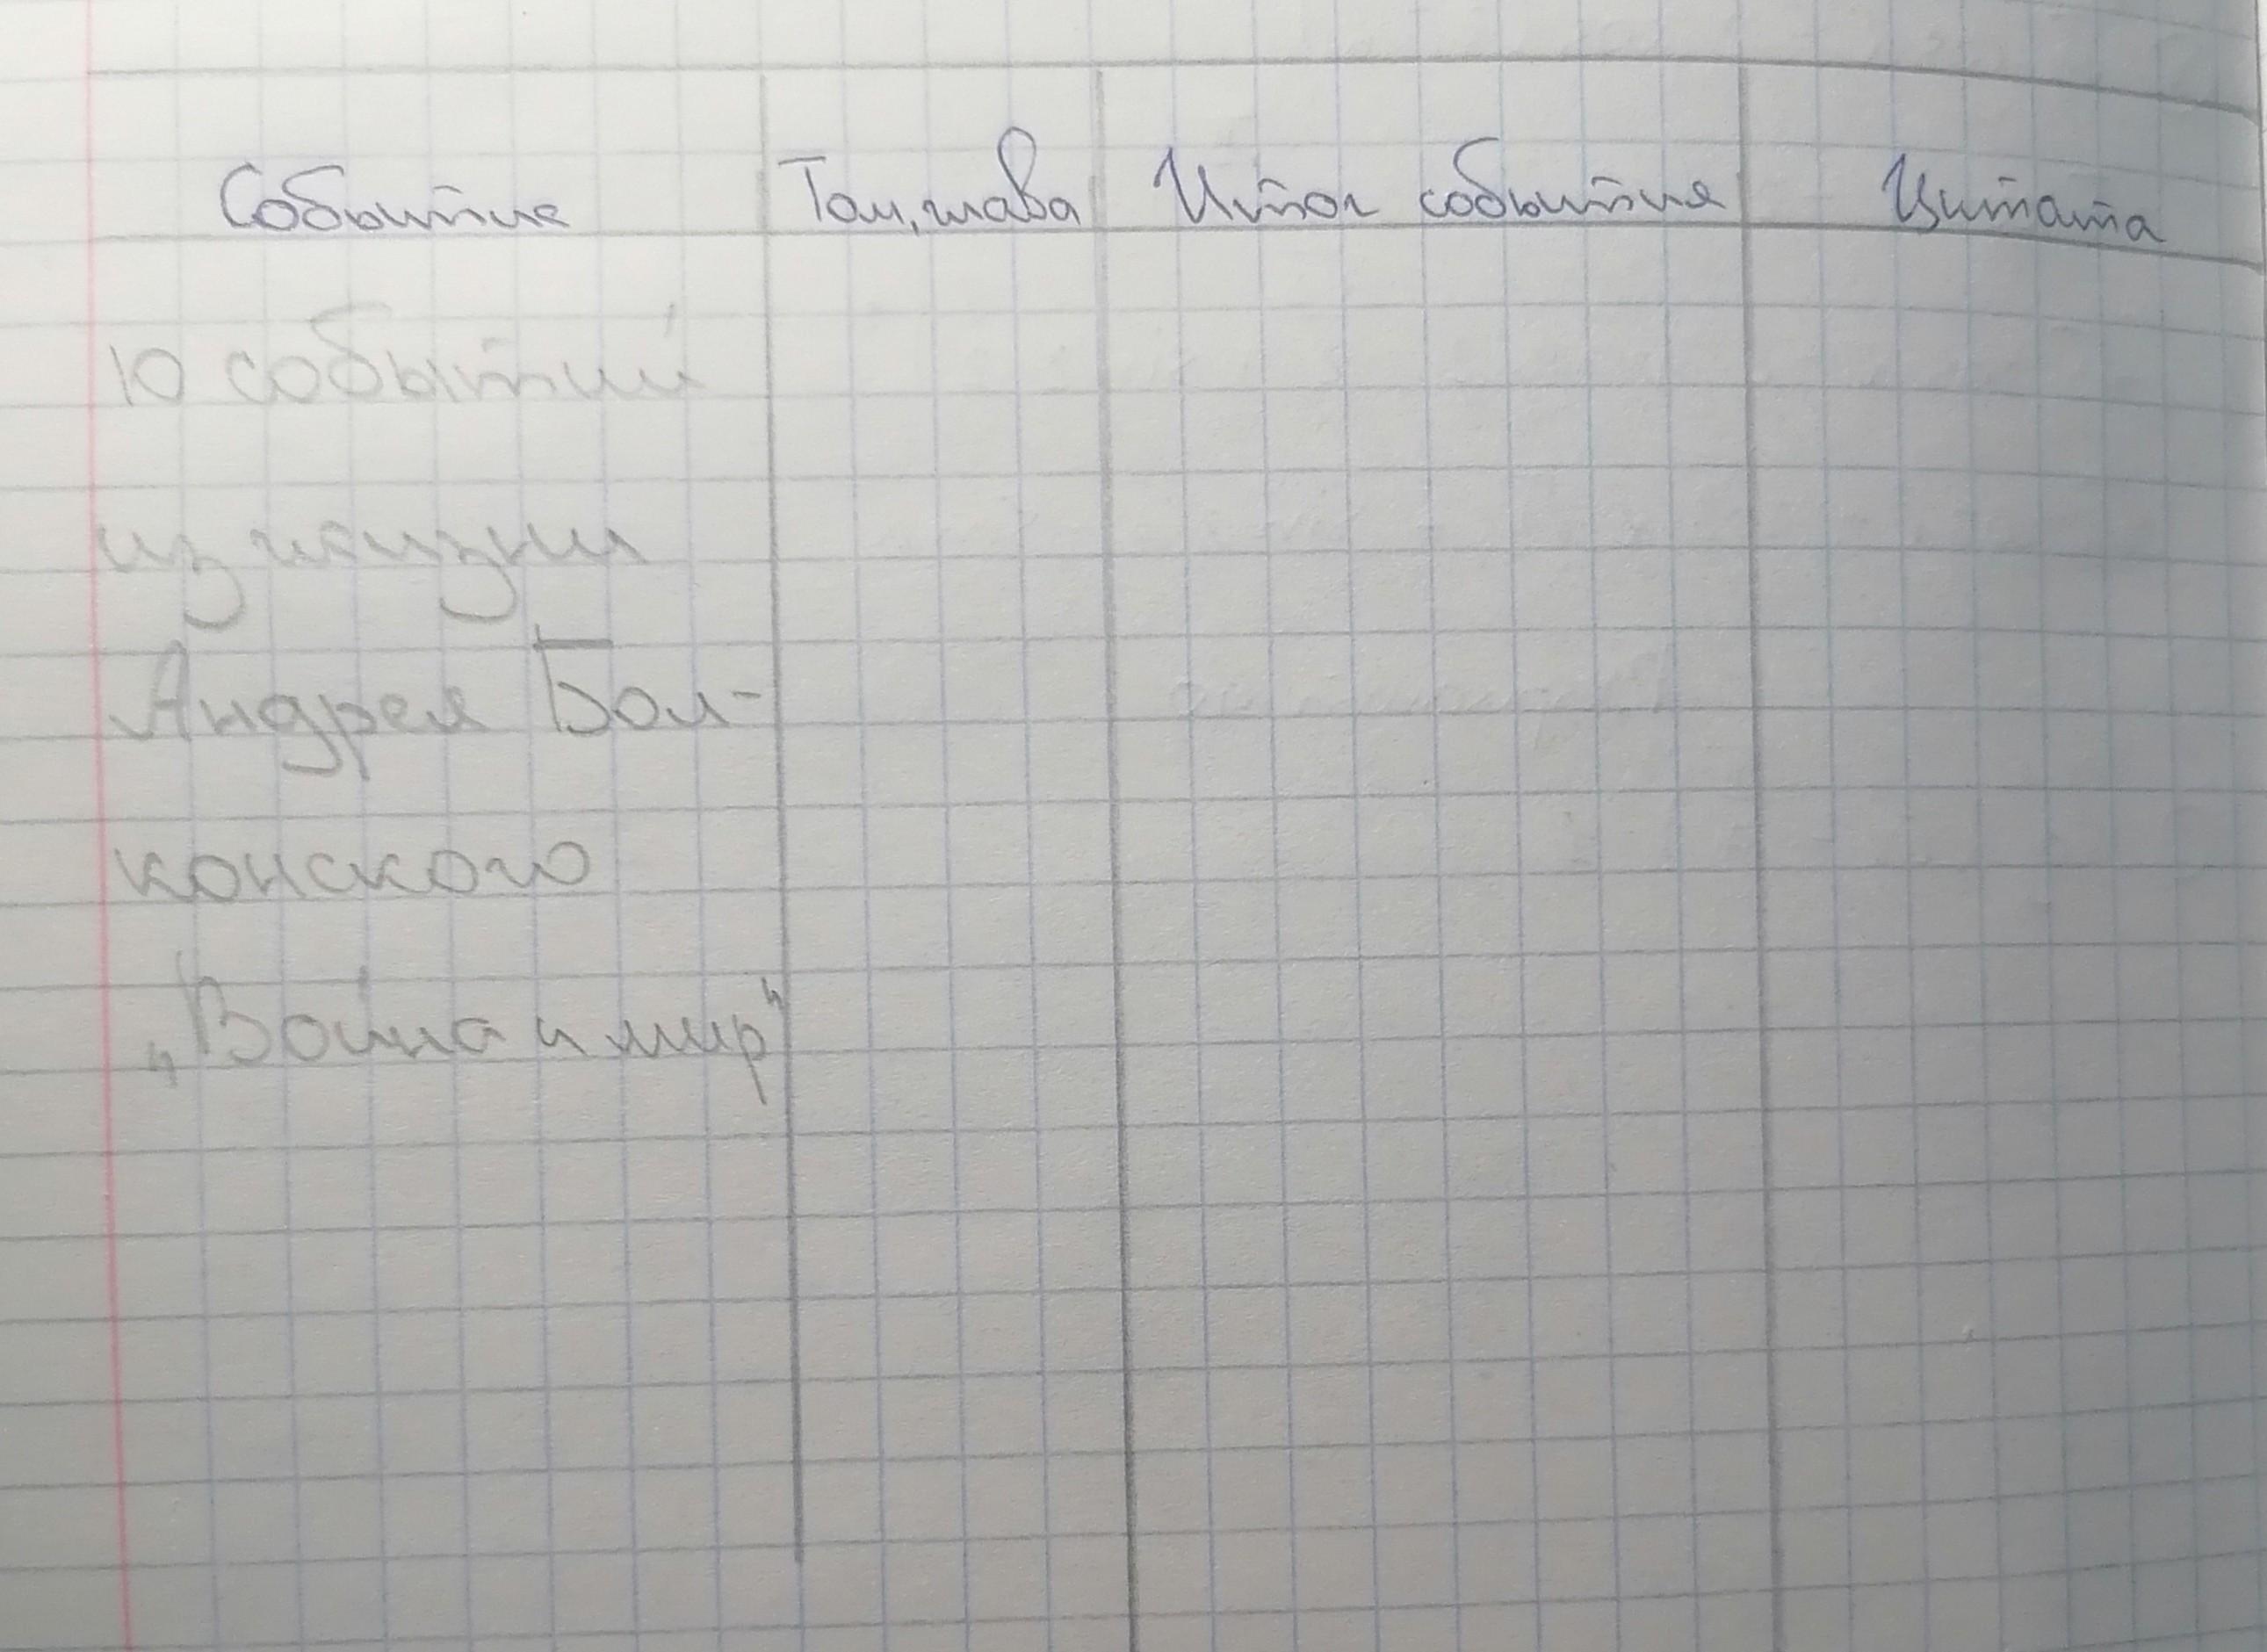 Событие Том, глава Итог события Цитата
10 событий
из жизни
Андрея Бол-
конского
"Война и мир"